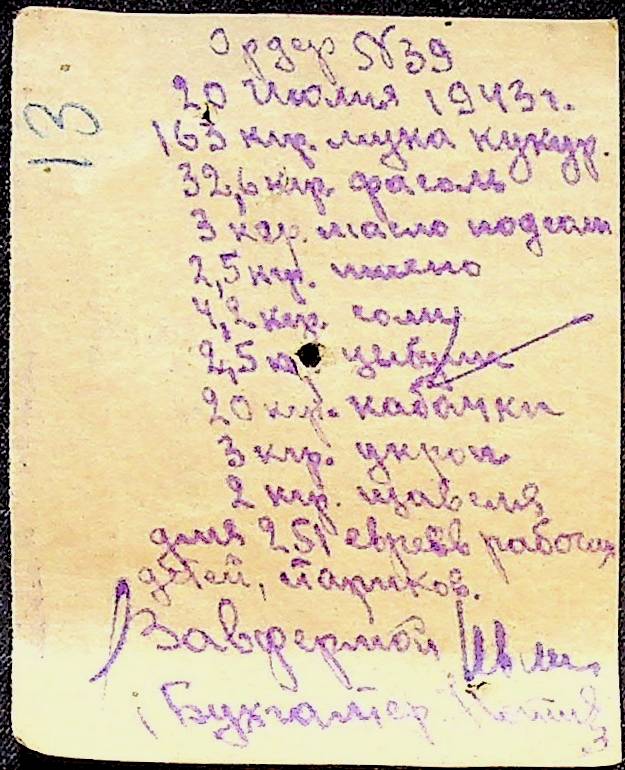 Ордер N39
13
20 Июлия 1943 г.
163 кгр. мука кукур.
32,6 кгр. фасоль
3 кгр. масло подсол
2,5 кгр. пшено
4,2 кгр. соли
2,5 кгр. цыбули
20 кгр. кабачки
3 кгр. укроп
2 кгр. щавеля
для 251 евреев рабочих
детей, стариков.
Завфермой
Бухгалтер